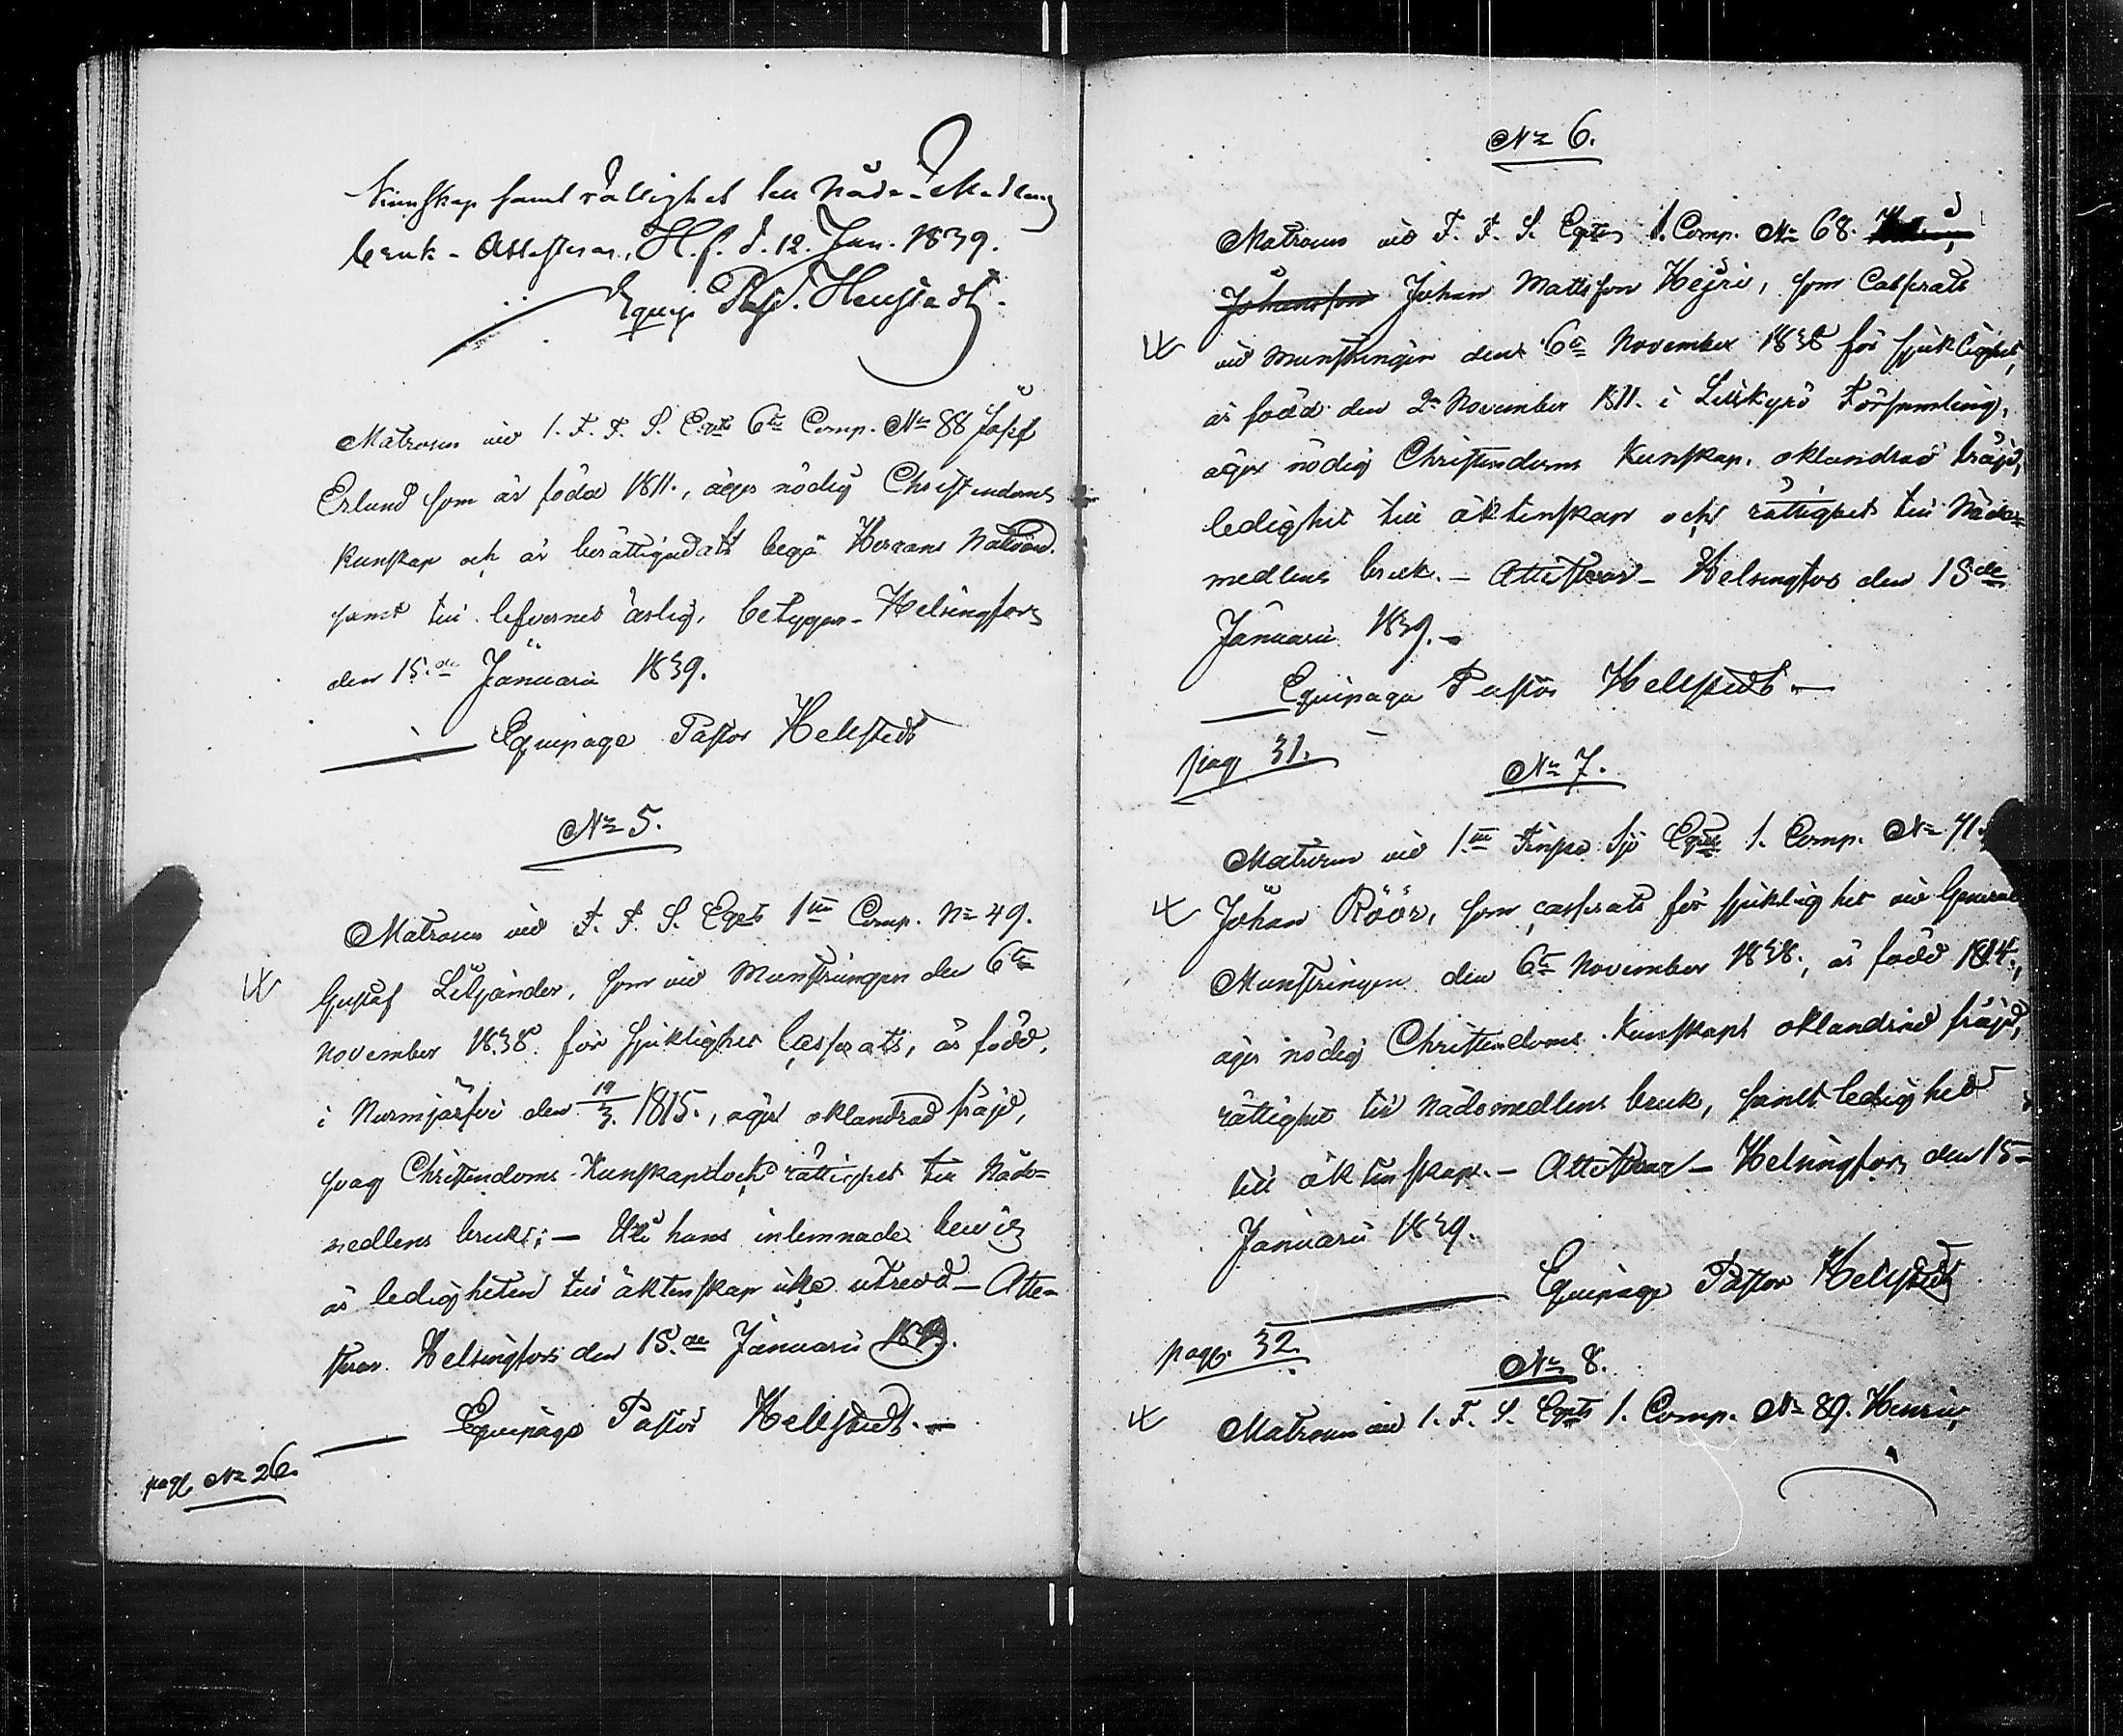 Kunskap samt rättighet till Nåde-Medlens
bruk - Attesterar, H.f. d. 12. Jan. 1839.
Equip Past. Hellstedt.
Matrosen vid 1. F. F. S. Eqts 6te Comp. No 88 Josef
Erlund som är född 1811., äger nödig Christendoms
kunskap och är berättigad att begå Herrans Nattvard.
samt till lefvernet ärlig, betygar - Helsingfors
den 15.de Januari 1839.
Equipage Pastor Hellstedt
No 5.
Matrosen vid F. F. S. Eqts 1sta Comp. No 49.
Gustaf Liljander, som vid Munstringen den 6te
November 1838. för sjuklighet Casserats, är född.
i Nurmijärfvi den 19/3. 1815., äger oklandrad fräjd,
svag Christendoms Kunskap dock rättighet till Nåde=
medlens bruk; - Uti hans inlemnade bevis
är ledigheten till äktenskap icke utredd - Atte-
sterar. Helsingfors den 15.de Januari 1839.
Equipage Pastor Hellstedt. -
pag. No 26.
No 6.
Matrosen vid F. F. S. Eqts 1. Comp. No 68.
Johansson Johan Mattsson Hejri, som Casserats
vid munstringen den 6te November 1838 för sjuklighet,
är född den 2. November 1811. i Lillkyro Församling,
äger nödig Christendoms Kunskap. oklandrad fräjd,
ledighet till äktenskap och rättighet till Nåde=
medlens bruk. - Attesterar - Helsingfors den 15de
Januari 1839. -
Equipage Pastor Hellstedt -
pag. 31.
No 7.
Matrosen vid 1.sta Finska Sjö Eqts 1. Comp. No 71.
Johan Röör, som casserats för sjuklighet vid General
Munstringen den 6te November 1838., är född 1814.,
äger nödig Christendoms Kunskap oklandrad fräjd,
rättighet till nådemedlens bruk, samt ledighet
till äktenskap. - Attesterar - Helsingfors den 15-
Januari 1839.
Equipage Pastor Hellstedt
pag. 32.
No 8.
Matrosen vid 1. F. S. Eqts 1. Comp. No 89. Henric